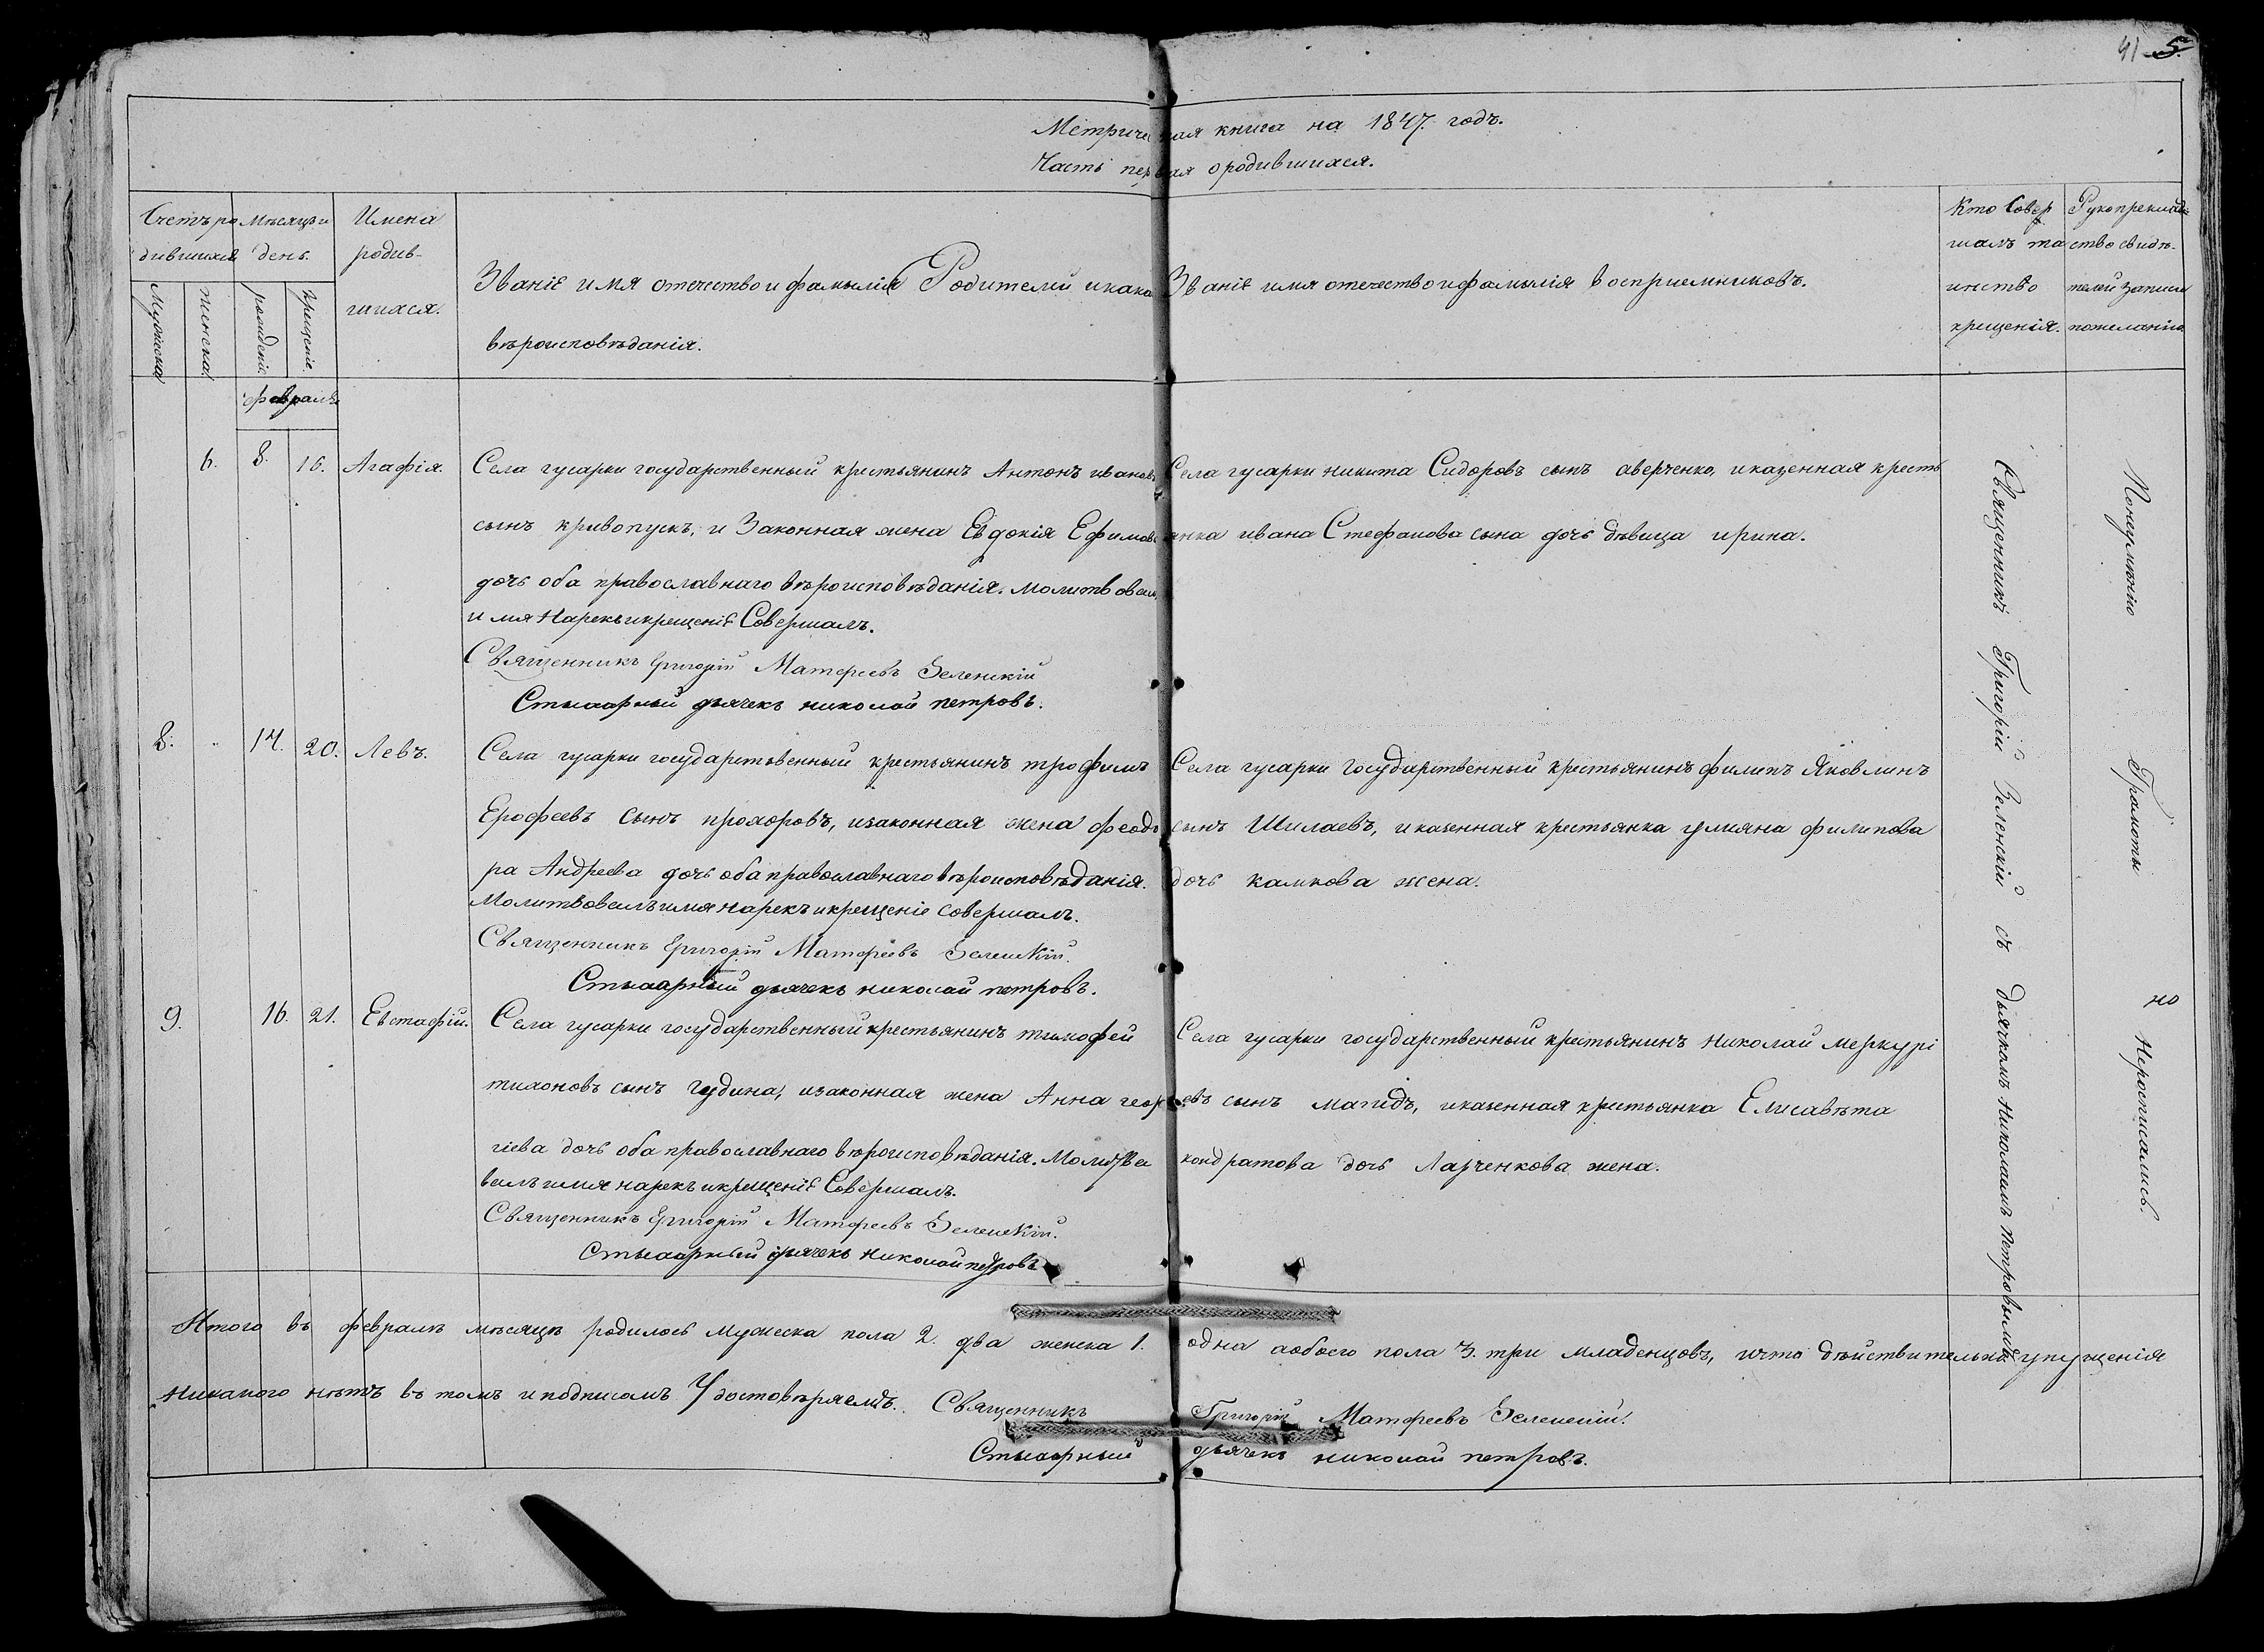 41 5
Метрическая книга на 1847. годъ.
Часть первая о родившихся.
Счетъ ро
дившихся
Мужеска
Женска
Мѣсяцъ и
день.
рожденіе
крещеніе
Имена
родив-
шихся.
Званіе имя отечество и фамылія Родителей и кака
вѣроисповѣданія.
Званіе имя отечество и фамылія воспріемниковъ.
Кто Совер
шалъ та
инство
крещенія.
Рукоприклад
ство свидѣ-
телей записи
по желанію
февраль
6. 8. 16. Агафія.
Села гусарки государственный крестьянинъ Антонъ ивановъ
сынъ кривопускъ, и Законная жена Евдокія Ефимова
дочь оба православнаго вѣроисповѣданія. молитвовалъ
имя нарекъ и крещеніе Совершалъ.
Священникъ Григорій Матфеевъ Зеленскій
дьячекъ николай петровъ.
Села гусарки никита Сидоровъ сынъ аверченко, и казенная кресть
янка ивана Стефанова сына дочь дѣвица ирина.
8. 14. 20. Левъ.
Села гусарки государственный крестьянинъ трофимъ
Ерофеевъ сынъ прохоровъ, и законная жена феодо
ра Андреева дочь оба православнаго вѣроисповѣданія.
Молитвовалъ имя нарекъ и крещеніе совершалъ.
Священникъ Григорій Матфеевъ Зеленскій.
дьячекъ николай петровъ.
Села гусарки государственный крестьянинъ филипъ Яковлинъ
сынъ Шилаевъ, и казенная крестьянка улияна филипова
дочь камкова жена.
9. 16. 21. Евстафій.
Села гусарки государственный крестьянинъ тимофей
тихоновъ сынъ гудина, и законная жена Анна геор
гіева дочь оба православнаго вѣроисповѣданія. Молитво
валъ имя нарекъ и крещеніе Совершалъ.
Священникъ Григорій Матфеевъ Зеленскій.
дьячекъ николай петровъ
Села гусарки государственный крестьянинъ николай меркурі
евъ сынъ магидъ, и казенная крестьянка Елисавѣта
кондратова дочь Ларченкова жена.
Священникъ Григорій Зеленскій съ дьячкомъ Николаемъ Петровымъ
По неумѣнію Грамоты не росписались.
Итого въ февралѣ мѣсяцѣ родилось мужеска пола 2. два женска 1. одна а обоего пола 3. три младенцовъ, и что дѣйствительно упущенія
никакого нѣтъ въ томъ и подписомъ Удостовѣряемъ. Священникъ Григорій Матфеевъ Зеленскій.
дьячекъ николай петровъ.